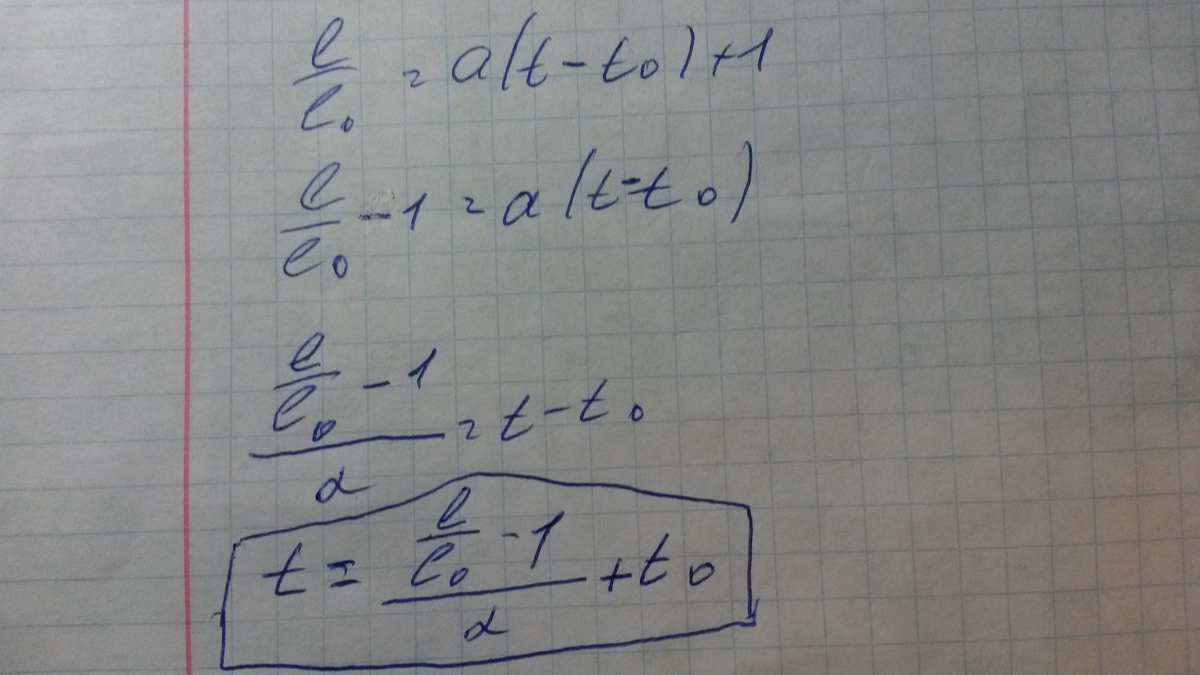 l/l₀ = α(t - t₀) + 1
l/l₀ - 1 = α(t - t₀)
(l/l₀ - 1)/α = t - t₀
t = (l/l₀ - 1)/α + t₀